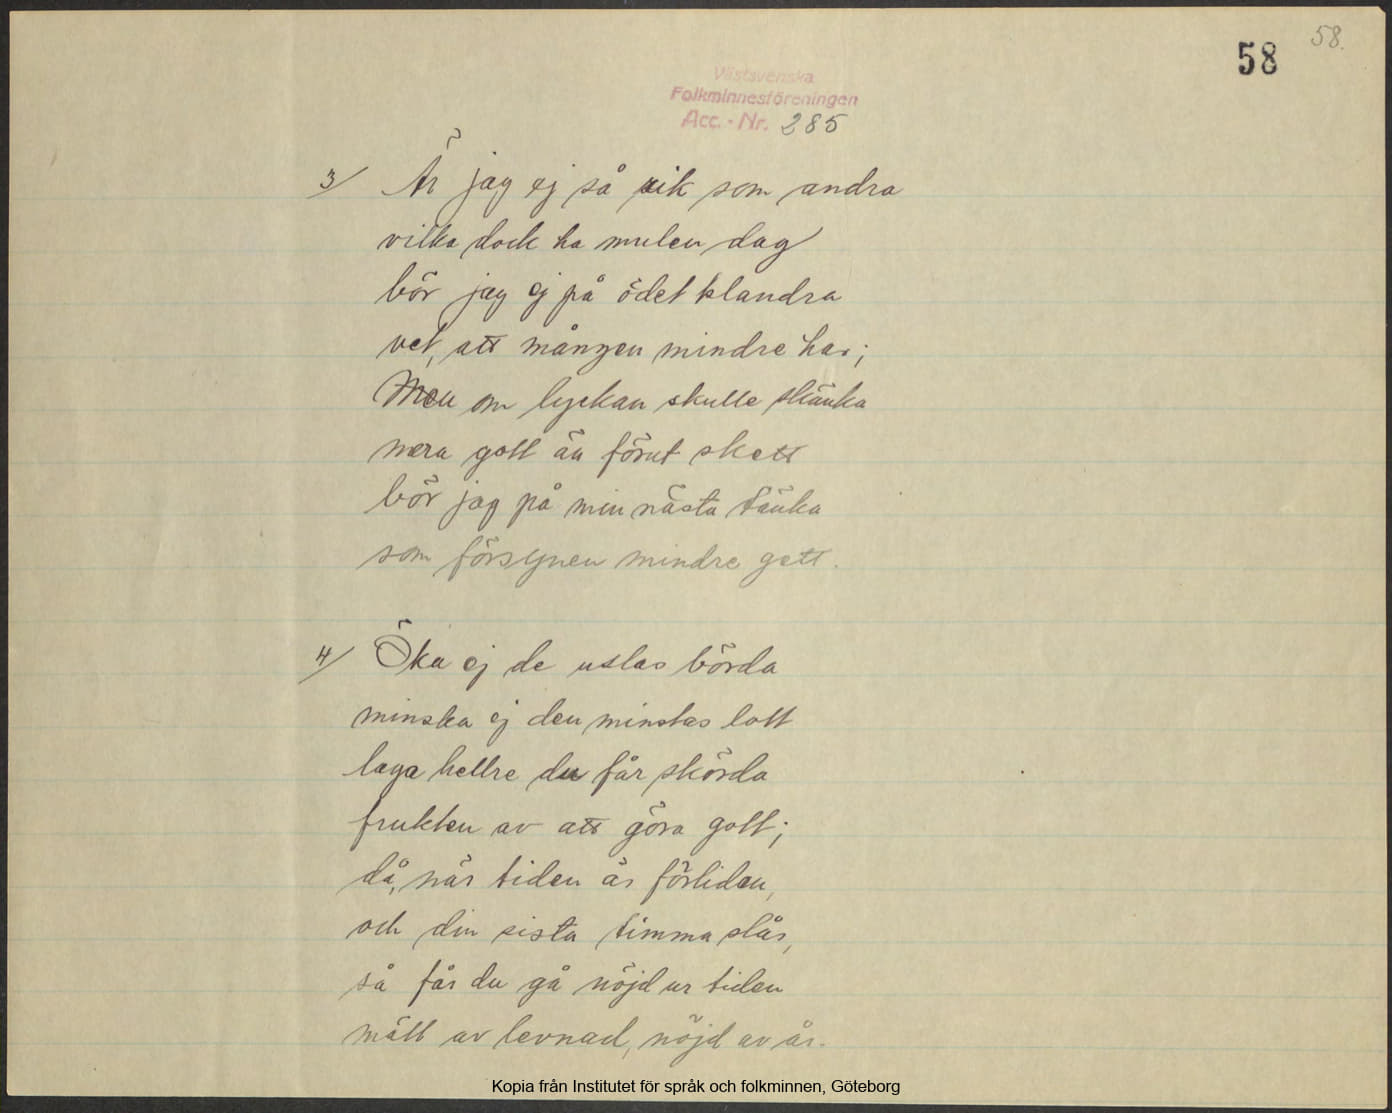 58
58.
Västsvenska
Folkminnesföreningen
Acc.-Nr. 285
3/ Är jag ej så rik som andra
vilka dock ha mulen dag
bör jag ej på ödet klandra
vet, att mången mindre har;
Men om lyckan skulle skänka
mera gott än förut skett
bör jag på min nästa tänka
som försynen mindre gett.
4/ Öka ej de uslas börda
minska ej den minstas lott
laga hellre du får skörda
frukten av att göra gott;
då, när tiden är förliden,
och din sista timma slår,
så får du gå nöjd ur tiden
mätt av levnad, nöjd av år.
Kopia från Institutet för språk och folkminnen, Göteborg